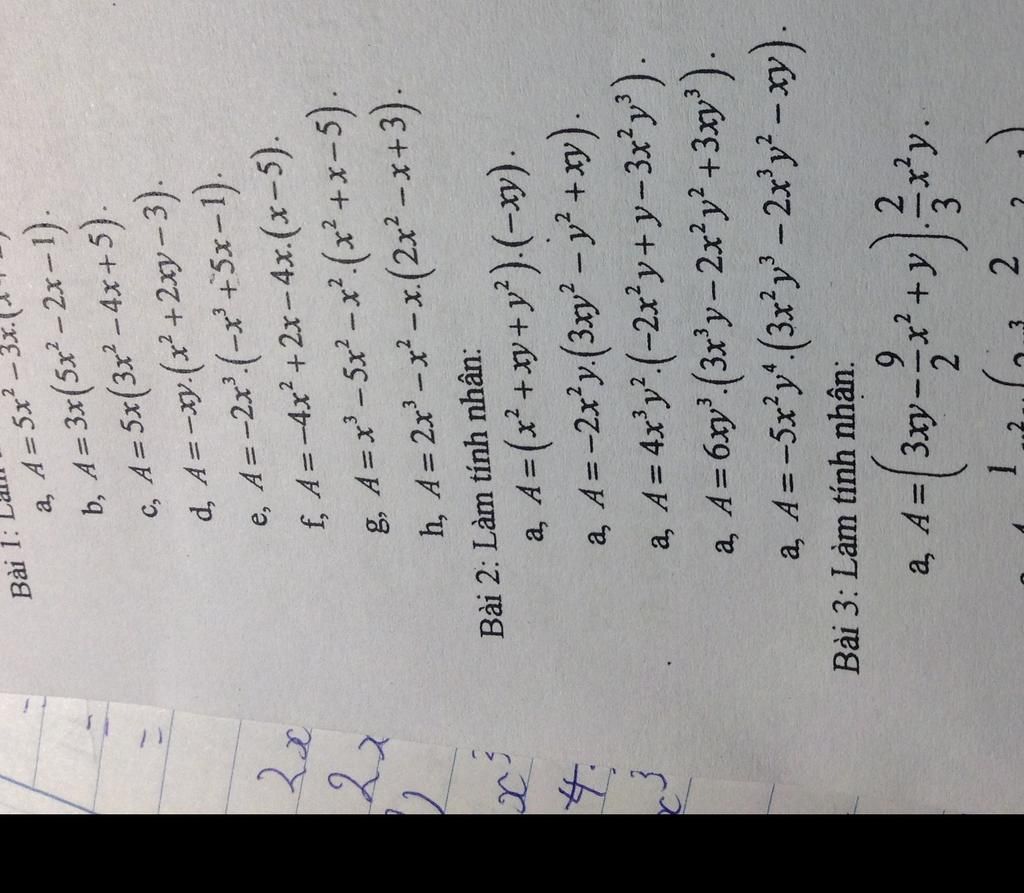 Bài 1:
A = 5x² − 3x.(
a, A = 3x(5x² − 2x − 1).
b, A = 5x(3x² − 4x + 5).
c, A = −xy.(x² + 2xy − 3).
d, A = −2x³.(−x³ + 5x − 1).
e, A = −4x² + 2x − 4x.(x − 5).
f, A = x³ − 5x² − x².(x² + x − 5).
g, A = 2x³ − x² − x.(2x² − x + 3).
h,
Bài 2: Làm tính nhân:
a, A = (x² + xy + y²).(−xy).
a, A = −2x²y.(3xy² − y² + xy).
a, A = 4x³y².(−2x²y + y − 3x²y³).
a, A = 6xy³.(3x³y − 2x²y² + 3xy³).
a, A = −5x²y⁴.(3x²y³ − 2x³y² − xy).
Bài 3: Làm tính nhận:
a, A = (3xy − 9/2 x² + y).2/3 x²y.
2x
2x
x³
4.
x³